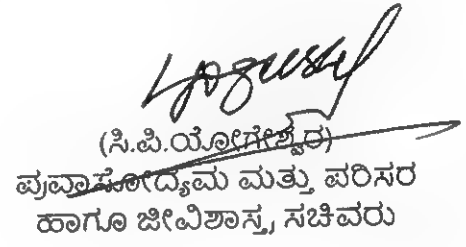 (ಸಿ.ಪಿ.ಯೋಗೇಶ್ವರ)
ಪ್ರವಾಸೋದ್ಯಮ ಮತ್ತು ಪರಿಸರ
ಹಾಗೂ ಜೀವಿಶಾಸ್ತ್ರ ಸಚಿವರು